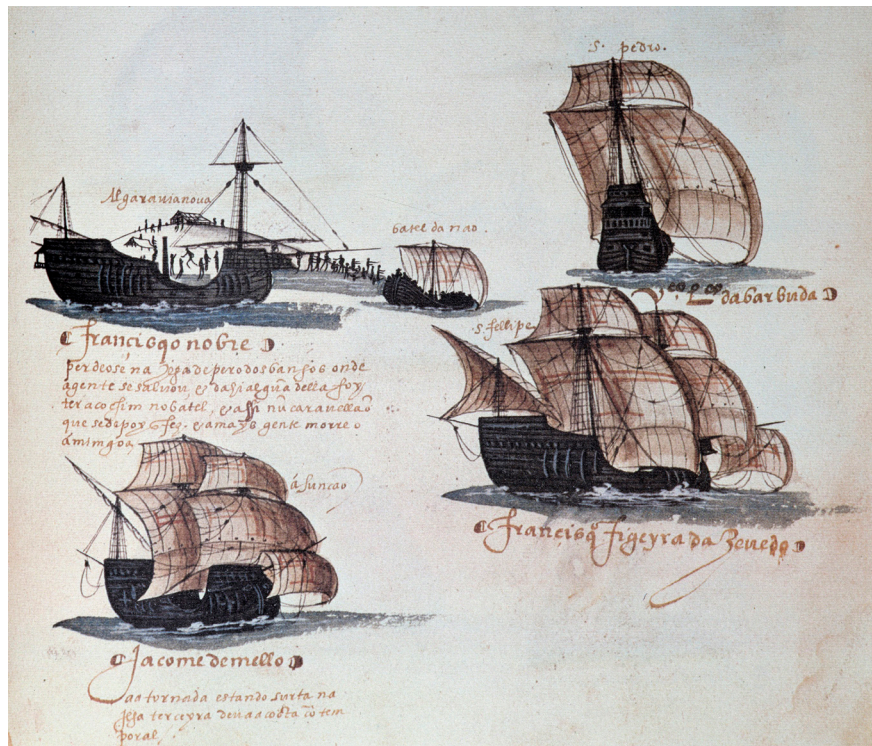 s. pedro.
Algaravia nova
batel da nao.
da barbuda
s. fellipe
francisqo nobre
perdeose na de pero dos banhos onde
agente se salvou, e dahi algũa della foy
ter a cochim no batel, e assi nũ caravellaõ
que se depoys fez. e a mays gente morreo
á mimgoa
á sunçaõ
francisqo figeyra da Zevedo
Jacome de mello
aa tornada estando surta na
Ilha terceyra deu aa costa cõ tem
poral.